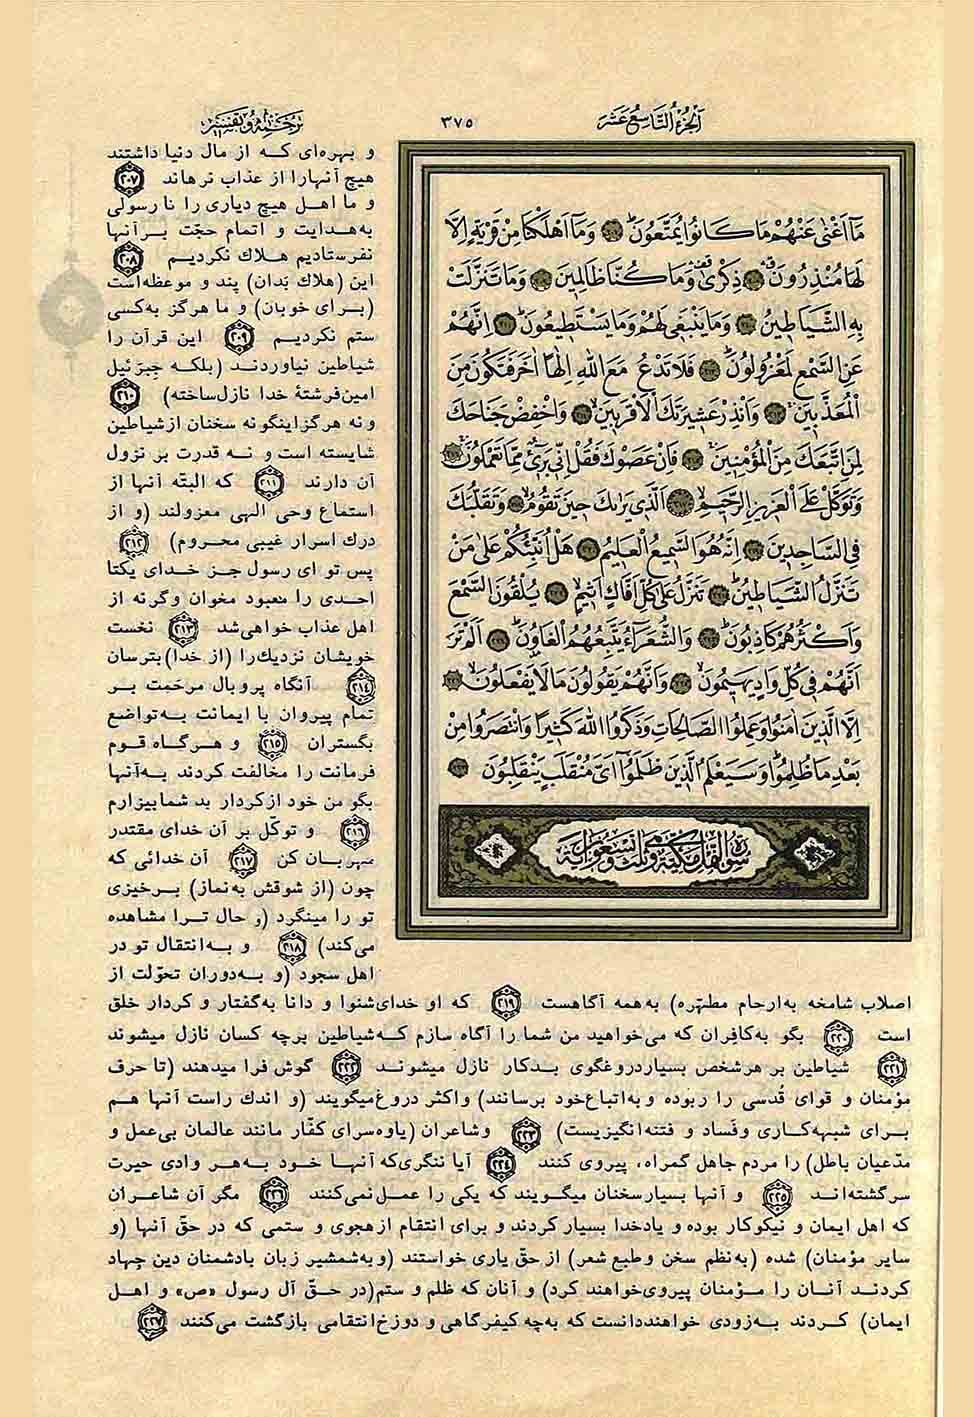 اَلْجُزْءُ التّاسِعُ عَشَرَ
٣٧٥
ترجمه و تفسیر
مَآ اَغْنٰى عَنْهُمْ مَا كَانُوا يُمَتَّعُونَ ۲۰۷ وَمَآ اَهْلَكْنَا مِنْ قَرْيَةٍ اِلَّا
لَهَا مُنْذِرُونَ ۲۰۸ ذِكْرٰى وَمَا كُنَّا ظَالِمِينَ ۲۰۹ وَمَا تَنَزَّلَتْ
بِهِ الشَّيَاطِينُ ۲۱۰ وَمَا يَنْبَغِى لَهُمْ وَمَا يَسْتَطِيعُونَ ۲۱۱ اِنَّهُمْ
عَنِ السَّمْعِ لَمَعْزُولُونَ ۲۱۲ فَلَا تَدْعُ مَعَ اللّٰهِ اِلٰهًا اٰخَرَ فَتَكُونَ مِنَ
الْمُعَذَّبِينَ ۲۱۳ وَاَنْذِرْ عَشِيرَتَكَ الْاَقْرَبِينَ ۲۱۴ وَاخْفِضْ جَنَاحَكَ
لِمَنِ اتَّبَعَكَ مِنَ الْمُؤْمِنِينَ ۲۱۵ فَاِنْ عَصَوْكَ فَقُلْ اِنِّى بَرِىٓءٌ مِمَّا تَعْمَلُونَ ۲۱۶
وَتَوَكَّلْ عَلَى الْعَزِيزِ الرَّحِيمِ ۲۱۷ اَلَّذِى يَرٰيكَ حِينَ تَقُومُ ۲۱۸ وَتَقَلُّبَكَ
فِى السَّاجِدِينَ ۲۱۹ اِنَّهُ هُوَ السَّمِيعُ الْعَلِيمُ ۲۲۰ هَلْ اُنَبِّئُكُمْ عَلٰى مَنْ
تَنَزَّلُ الشَّيَاطِينُ ۲۲۱ تَنَزَّلُ عَلٰى كُلِّ اَفَّاكٍ اَثِيمٍ ۲۲۲ يُلْقُونَ السَّمْعَ
وَاَكْثَرُهُمْ كَاذِبُونَ ۲۲۳ وَالشُّعَرَآءُ يَتَّبِعُهُمُ الْغَاوُنَ ۲۲۴ اَلَمْ تَرَ
اَنَّهُمْ فِى كُلِّ وَادٍ يَهِيمُونَ ۲۲۵ وَاَنَّهُمْ يَقُولُونَ مَا لَا يَفْعَلُونَ ۲۲۶
اِلَّا الَّذِينَ اٰمَنُوا وَعَمِلُوا الصَّالِحَاتِ وَذَكَرُوا اللّٰهَ كَثِيرًا وَانْتَصَرُوا مِنْ
بَعْدِ مَا ظُلِمُوا وَسَيَعْلَمُ الَّذِينَ ظَلَمُوٓا اَىَّ مُنْقَلَبٍ يَنْقَلِبُونَ ۲۲۷
سورة النمل مكية وهى ثلث وتسعون اٰية
و بهره‌ای که از مال دنیا داشتند
هیچ آنهارا از عذاب نرهاند ۲۰۷
و ما اهل هیچ دیاری را تا رسولی
به‌هدایت و اتمام حجّت برآنها
نفرستادیم هلاك نکردیم ۲۰۸
این (هلاك بَدان) پند و موعظه‌است
(برای خوبان) و ما هرگز به‌کسی
ستم نکردیم ۲۰۹ این قرآن را
شیاطین نیاوردند (بلکه جِبرَئیل
امین‌فرشتهٔ خدا نازل‌ساخته) ۲۱۰
ونه هرگزاینگونه سخنان ازشیاطین
شایسته است و نه قدرت بر نزول
آن دارند ۲۱۱ که البتّه آنها از
استماع وحی الهی معزولند (و از
درك اسرار غیبی محروم) ۲۱۲
پس تو ای رسول جز خدای یکتا
احدی را معبود مخوان وگرنه از
اهل عذاب خواهی‌شد ۲۱۳ نخست
خویشان نزدیك‌را (از خدا)بترسان
۲۱۴ آنگاه پروبال مرحمت بر
تمام پیروان با ایمانت به‌تواضع
بگستران ۲۱۵ و هرگاه قوم
فرمانت را مخالفت کردند به‌آنها
بگو من خود ازکردار بد شمابیزارم
۲۱۶ و توکّل بر آن خدای مقتدر
مهربان کن ۲۱۷ آن خدائی که
چون (از شوقش به‌نماز) برخیزی
تو را مینگرد (و حال ترا مشاهده
می‌کند) ۲۱۸ و به‌انتقال تو در
اهل سجود (و به‌دوران تحوّلت از
اصلاب شامخه به‌ارحام مطهّره) به‌همه آگاهست ۲۱۹ که او خدای‌شنوا و دانا به‌گفتار و کردار خلق
است ۲۲۰ بگو به‌کافِران که می‌خواهید من شما را آگاه سازم که‌شیاطین برچه کسان نازل میشوند
۲۲۱ شیاطین بر هرشخص بسیاردروغگوی بدکار نازل میشوند ۲۲۲ گوش فرا میدهند (تا حرف
مؤمنان و قوای قُدسی را ربوده و به‌اتباع‌خود برسانند) واکثر دروغ‌میگویند (و اندك راست آنها هم
برای شبهه‌کاری وفَساد و فتنه‌انگیزیست) ۲۲۳ وشاعران (یاوه‌سرای کفّار مانند عالمان بی‌عمل و
مدّعیان باطل) را مردم جاهل گمراه، پیروی کنند ۲۲۴ آیا ننگری‌که آنها خود به‌هر وادی حیرت
سرگشته‌اند ۲۲۵ و آنها بسیارسخنان میگویند که یکی را عمل‌نمی‌کنند ۲۲۶ مگر آن شاعران
که اهل ایمان و نیکوکار بوده و یادخدا بسیار کردند و برای انتقام ازهجوی و ستمی که در حقّ آنها (و
سایر مؤمنان) شده (به‌نظم سخن وطبع شعر) از حقّ یاری خواستند (و به‌شمشیر زبان بادشمنان دین جهاد
کردند آنان را مؤمنان پیروی‌خواهند کرد) و آنان که ظلم و ستم(در حقّ آل رسول «ص» و اهل
ایمان) کردند به‌زودی خواهنددانست که به‌چه کیفرگاهی و دوزخ‌انتقامی بازگشت می‌کنند ۲۲۷